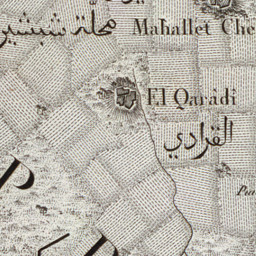 محلّة شبشير Mahallet Che
El Qarâdi
القرادي
P